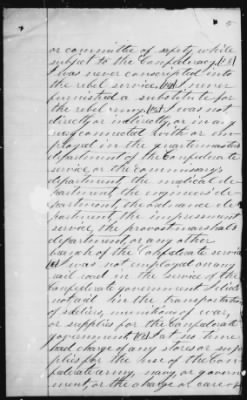 5
or committee of safety while
subject to the Confederacy.
I was never conscripted into
the rebel service. I never
furnished a substitute for
the rebel army. I was not
directly or indirectly or in any
way connected with or em-
ployed in the quartermasters
department of the Confederate
service or the commissary's
department the medical de-
partment, the engineers de-
partment, the ordnance de-
partment, the impressment
service, the provost marshal's
department, or any other
branch of the Confederate service
I was not employed on any
rail road in the service of the
Confederate government. I did
not aid in the transportation
of soldiers, munitions of war,
or supplies for the Confederate
government. I at no time
had charge of any stores or sup-
plies for the use of the Con-
federate army, navy, or govern-
ment, or the charge or care of